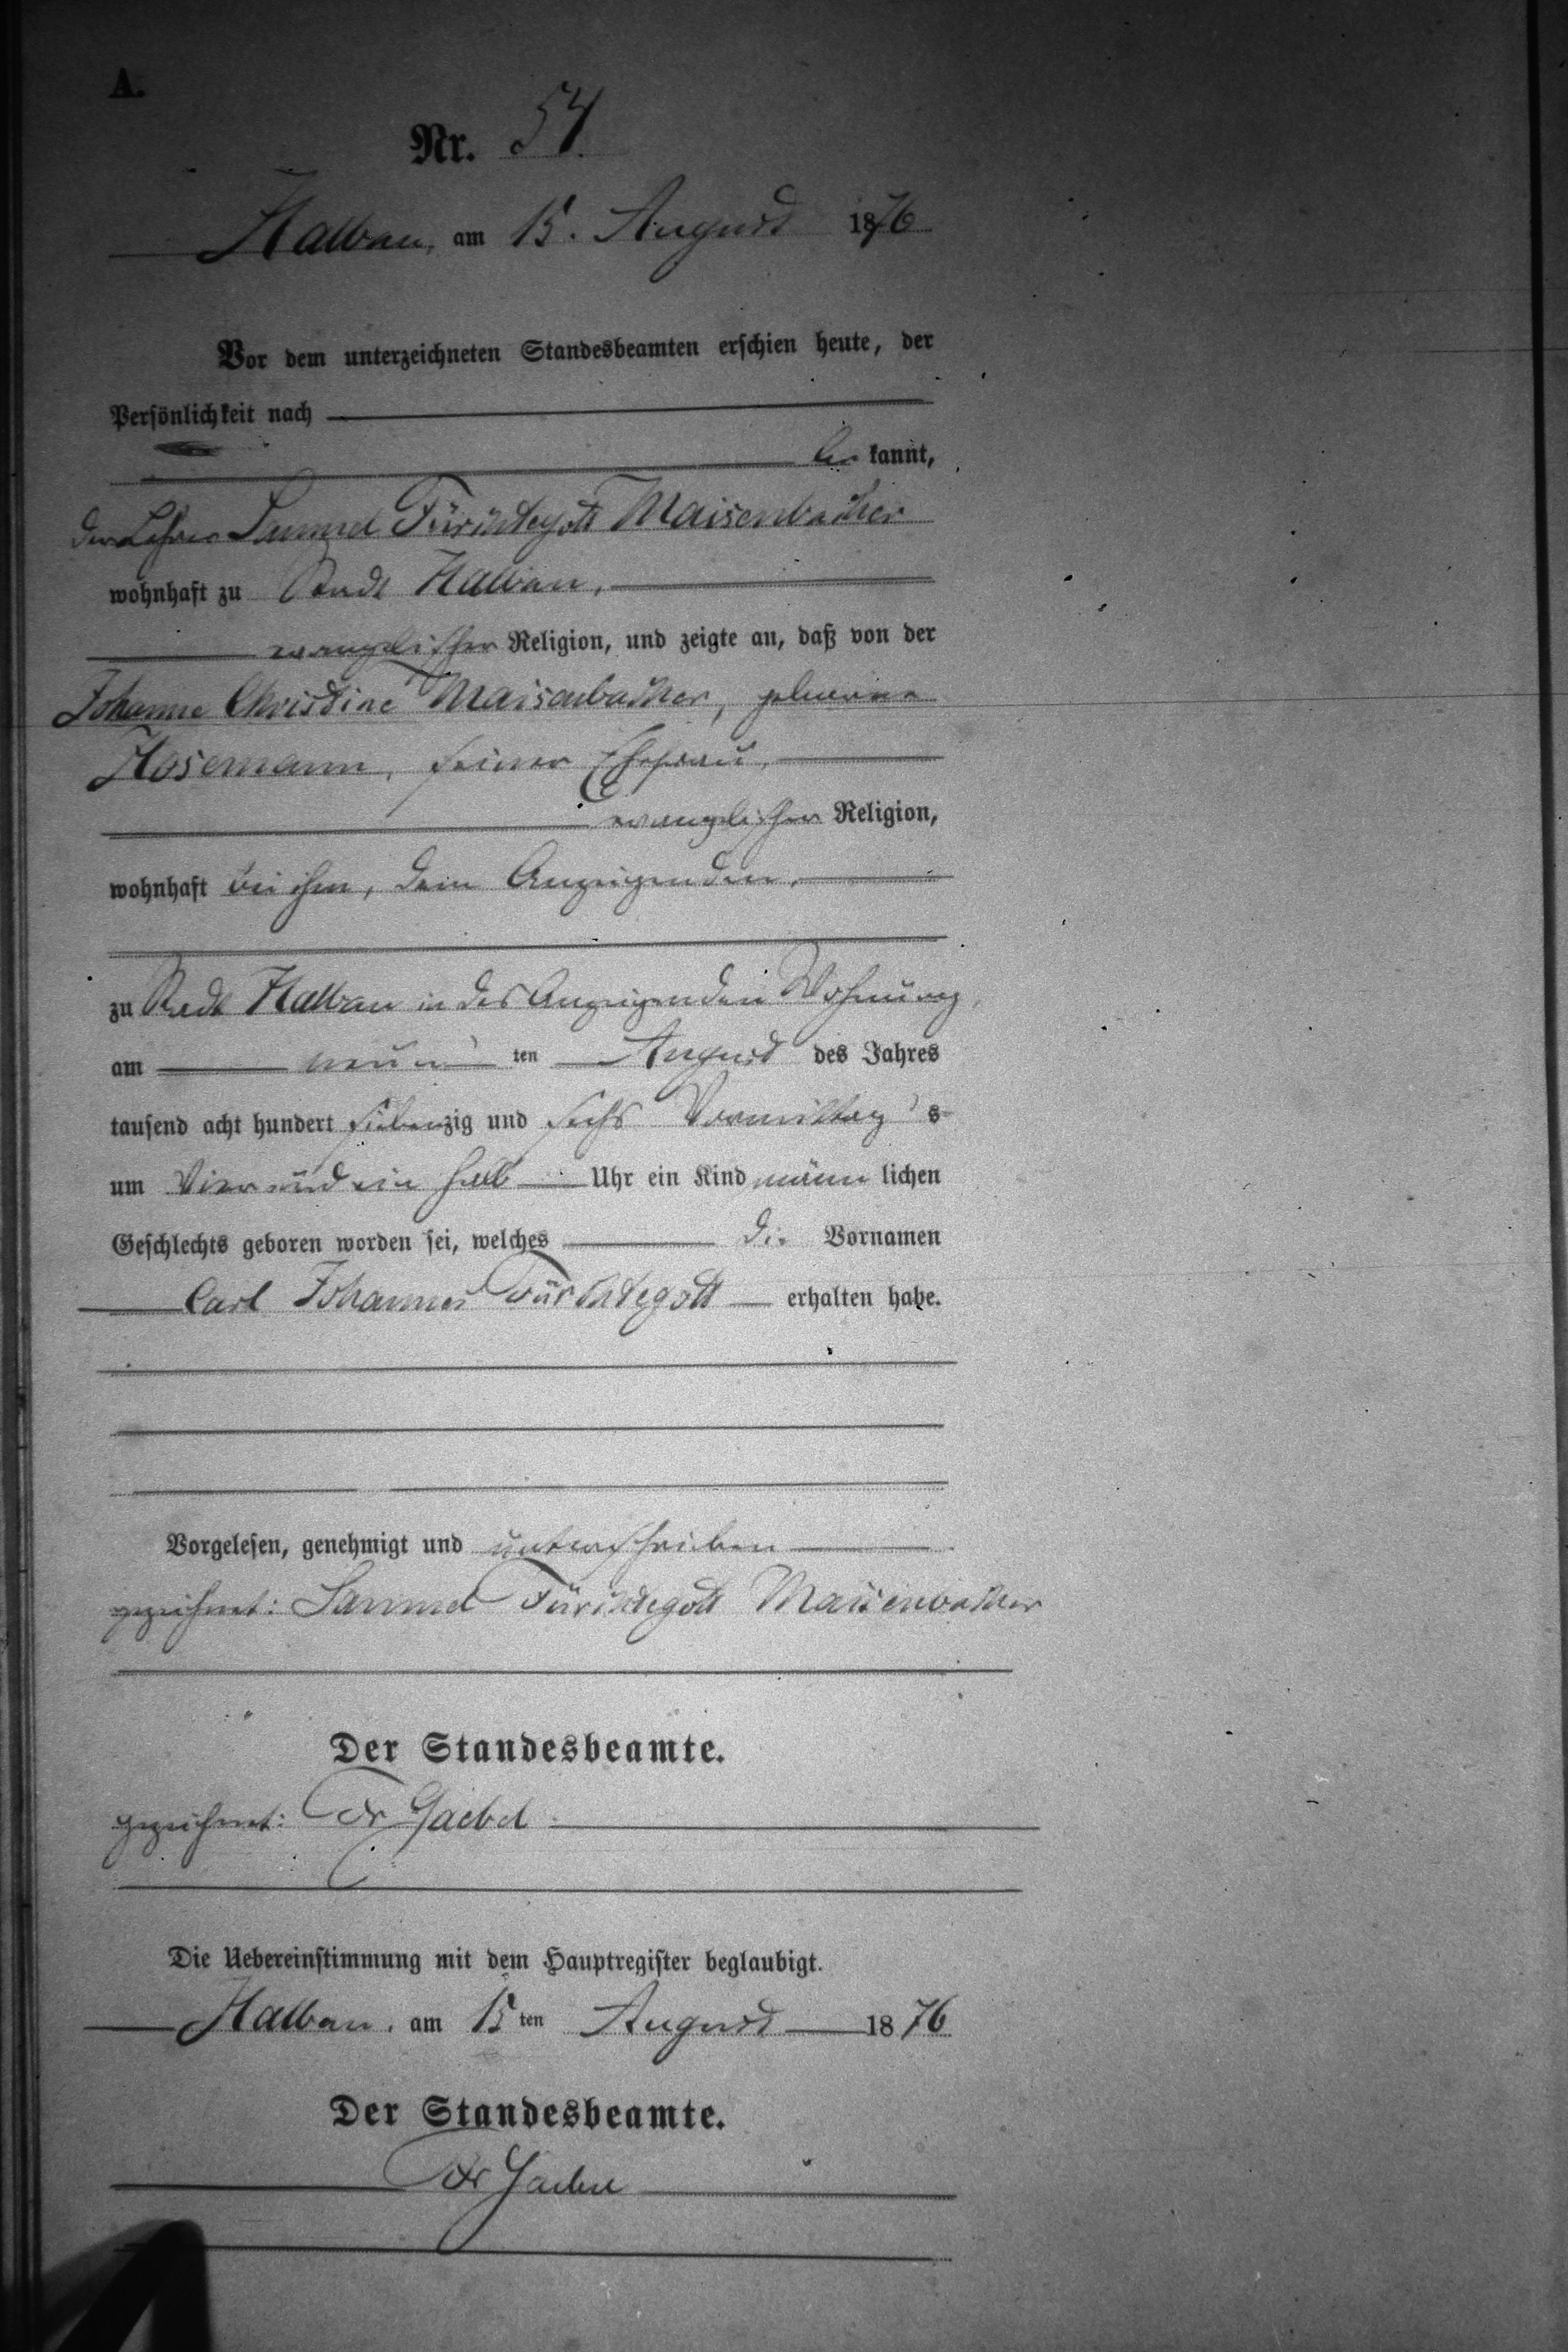 A.
Nr. 54.
Halbau, am 15. August 1876
Vor dem unterzeichneten Standesbeamten erschien heute, der
Persönlichkeit nach
be kannt,
der Lehrer Samuel Fürchtegott Maisenbacher
wohnhaft zu Stadt Halbau,
evangelischer Religion, und zeigte an, daß von der
Johanne Christine Maisenbacher, geborene
Hosemann, seiner Ehefrau,
evangelischer Religion,
wohnhaft bei ihm, dem Anzeigenden,
zu Stadt Halbau in des Anzeigenden Wohnung,
am neun ten August des Jahres
tausend acht hundert siebenzig und sechs Vormittag s
um Vier und ein halb Uhr ein Kind männ lichen
Geschlechts geboren worden sei, welches die Vornamen
Carl Johannes Fürchtegott erhalten habe.
Vorgelesen, genehmigt und unterschrieben
gezeichnet: Samuel Fürchtegott Maisenbacher
Der Standesbeamte.
gezeichnet: Fr Gaebel
Die Uebereinstimmung mit dem Hauptregister beglaubigt.
Halbau, am 15 ten August 1876
Der Standesbeamte.
Fr Gaebel